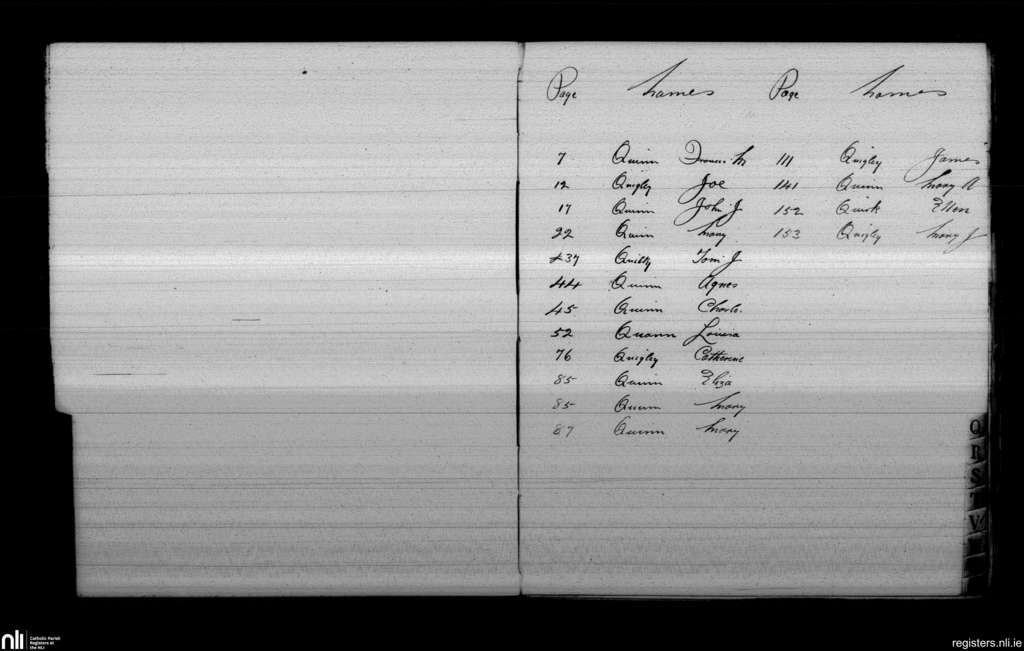 Page Names Page Names
7 Quinn Francis M 111 Quigley James
12 Quigley Joe 141 Quinn Mary A
17 Quinn John J 152 Quirk Ellen
22 Quinn Mary 153 Quigley Mary J
37 Quilty Tom J
44 Quinn Agnes
45 Quinn Charls.
52 Quann Louisa
76 Quigley Catherine
85 Quinn Eliza
85 Quinn Mary
87 Quinn Mary
Q
R
S
T
V
nli Catholic Parish
Registers at
the NLI
registers.nli.ie